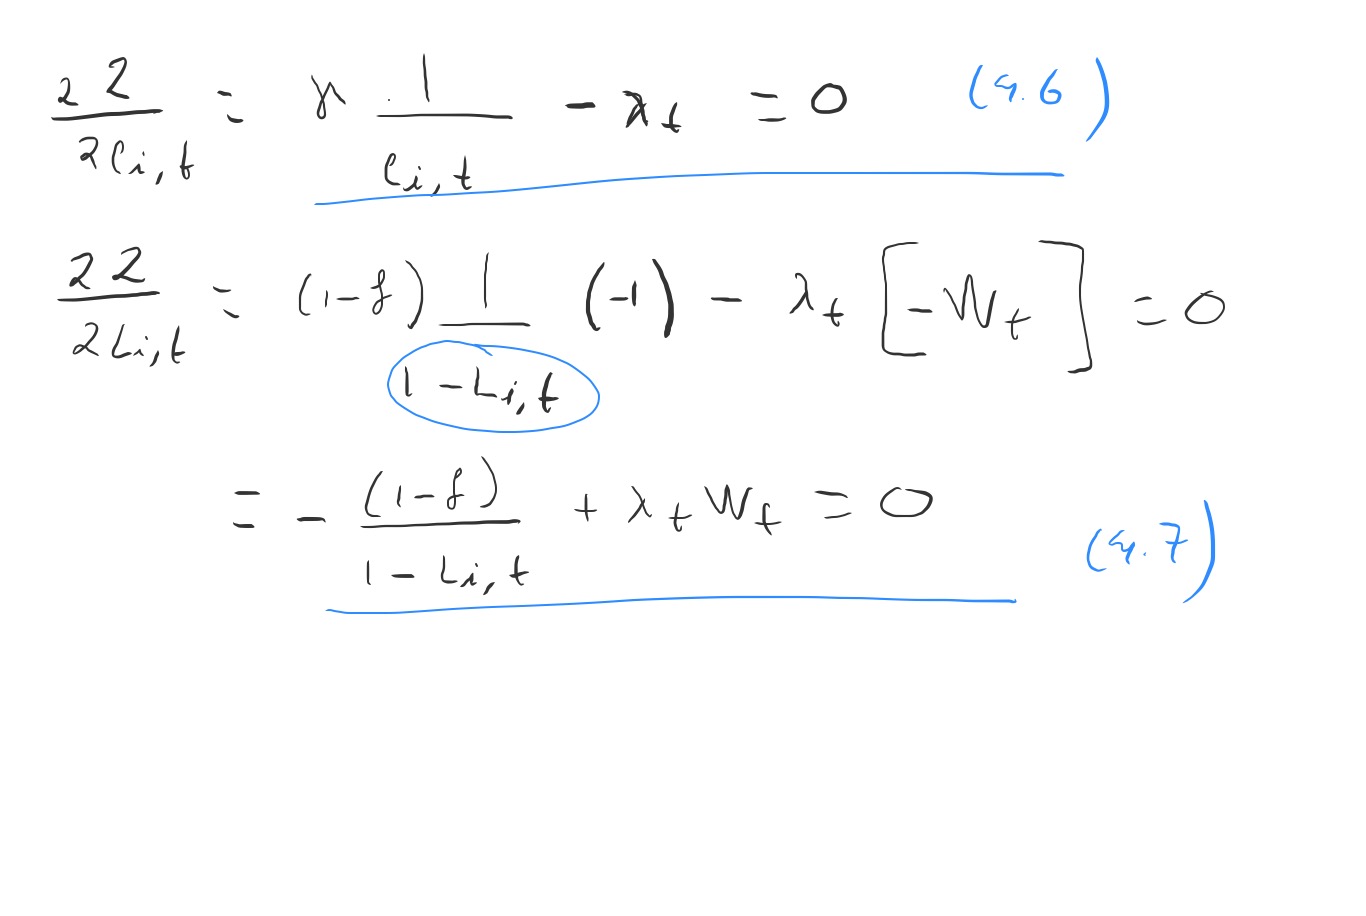 ∂ℒ/∂C_{i,t} = γ 1/C_{i,t} - λ_t = 0 (4.6)
∂ℒ/∂L_{i,t} = (1-γ) 1/(1-L_{i,t}) (-1) - λ_t [-W_t] = 0
= - (1-γ)/(1-L_{i,t}) + λ_t W_t = 0 (4.7)